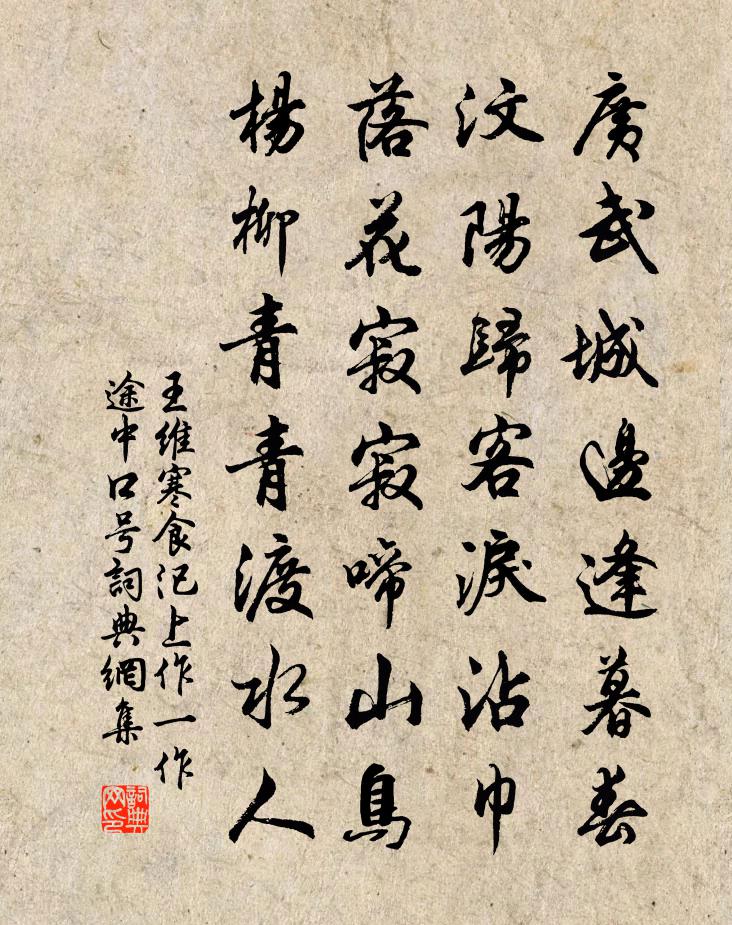 廣武城邊逢暮春
汶陽歸客淚沾巾
落花寂寂啼山鳥
楊柳青青渡水人
王維寒食汜上作一作
途中口号詞典網集
詞典
网印